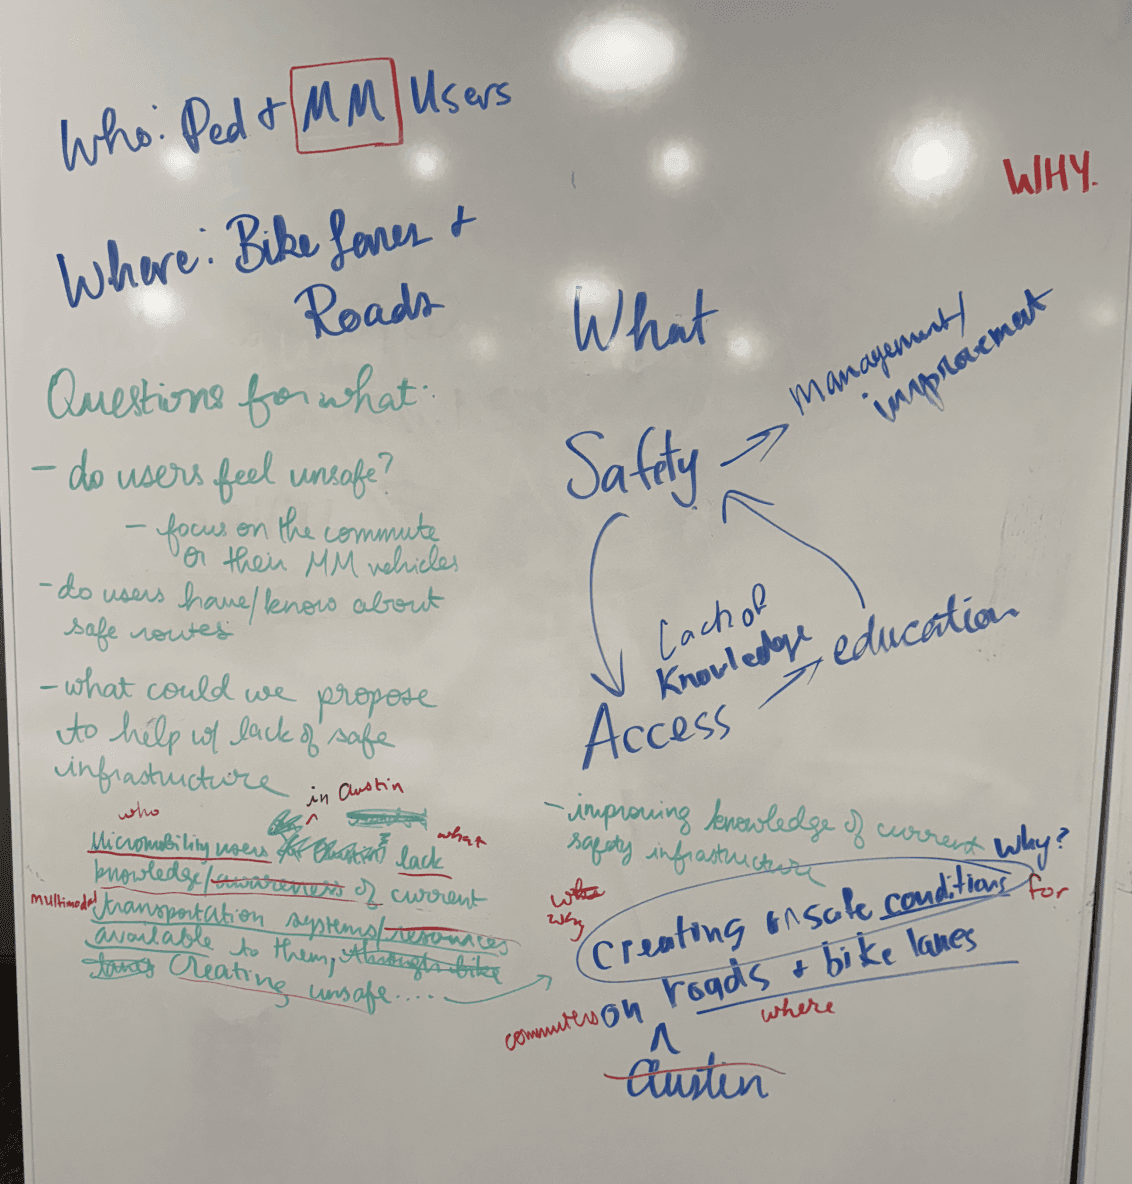 Who: Ped + MM Users
WHY.
Where: Bike Lanes +
Roads
What
management/
improvement
Safety
Lack of
Knowledge
education
Access
Questions for what:
- do users feel unsafe?
- focus on the commute
or their MM vehicles
- do users have/know about
safe routes
- what could we propose
to help w/ lack of safe
infrastructure
in Austin
who
what
Micromobility users lack
knowledge/awareness of current
multimodal
transportation systems/resources
available to them, through bike
lanes Creating unsafe....
- improving knowledge of current
safety infrastructure
Why?
why
creating unsafe conditions for
commuters on roads + bike lanes
where
Austin